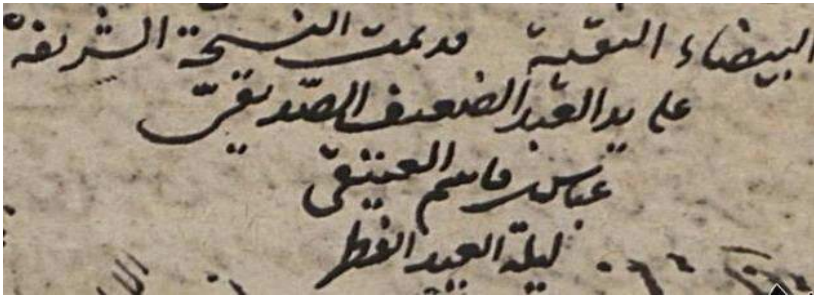 البيضاء النقية قد تمت النسخة الشريفة
على يد العبد الضعيف الصديقيّ
عباس قاسم العتيقي
ليلة العيد الفطر